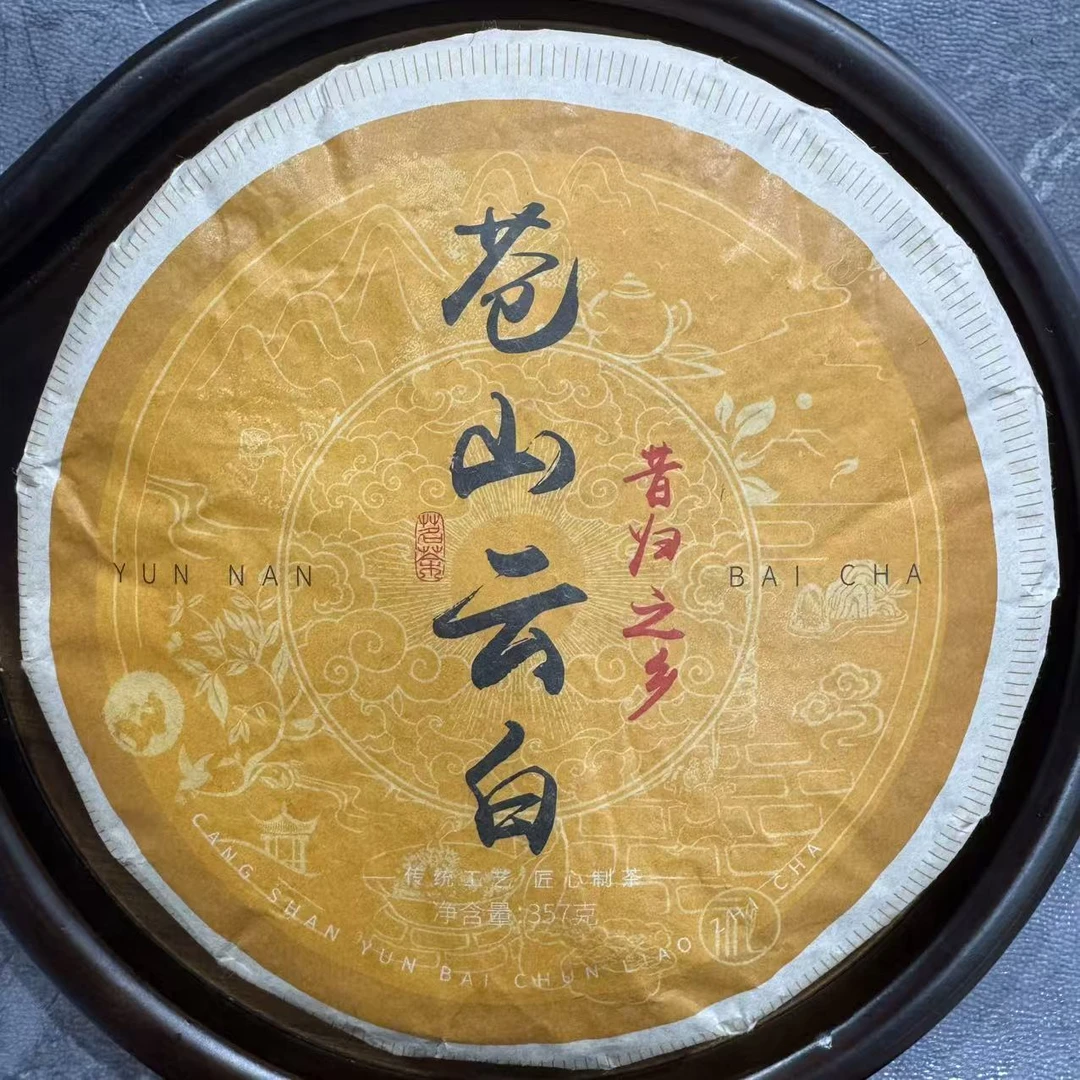 苍山云白
昔归之乡
茗茶
YUN NAN
BAI CHA
传统工艺 匠心制茶
净含量:357克
CANG SHAN YUN BAI CHUN LIAO ZHI CHA